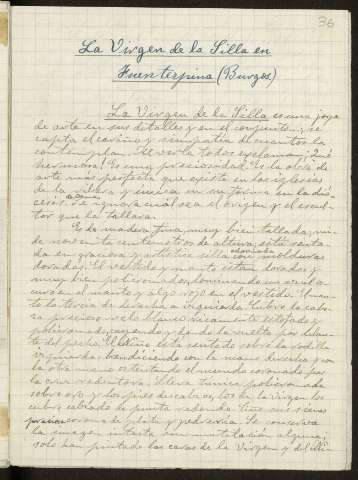 36
La Virgen de la Silla en
Fuenterpina (Burgos)
La Virgen de la Silla es una joya
de arte en sus detalles y en el conjunto, se
capta el cariño y simpatía de cuantos la
contemplan. Al verla todos exclaman: ¡Qué
hermosa! Es una preciosidad. Es la obra de
arte más perfecta que existe en las iglesias
de la ribera y única en su forma en la dió-
cesis. Se ignora cual sea el origen y el escul-
tor que la tallara.
Es de madera fina, muy bien tallada, mi-
de noventa centímetros de altura, está senta-
da en graciosa y artística silla con molduras
doradas. El vestido y manto están dorados y
muy bien policromados, dominando un azul o
scuro el manto y algo rojo en el vestido. El man-
to la tercia de derecha a izquierda. Cubre la cabe-
za precioso velo blanco ricamente estofado y
policromado, cayendo y da la vuelta por delan-
te del pecho. El Niño está sentado sobre la rodilla
izquierda, bendiciendo con la mano derecha y con
la otra mano ostentando el mundo coronado por
la cruz redentora. Lleva túnica policromada
sobre oro y los pies descalzos, los de la Virgen los
cubre calzado de punta redonda. Tiene sus
corona de plata y pedrería. Se conserva
la imagen intacta sin mutilación alguna;
solo han pintado las caras de la Virgen y del Ni-